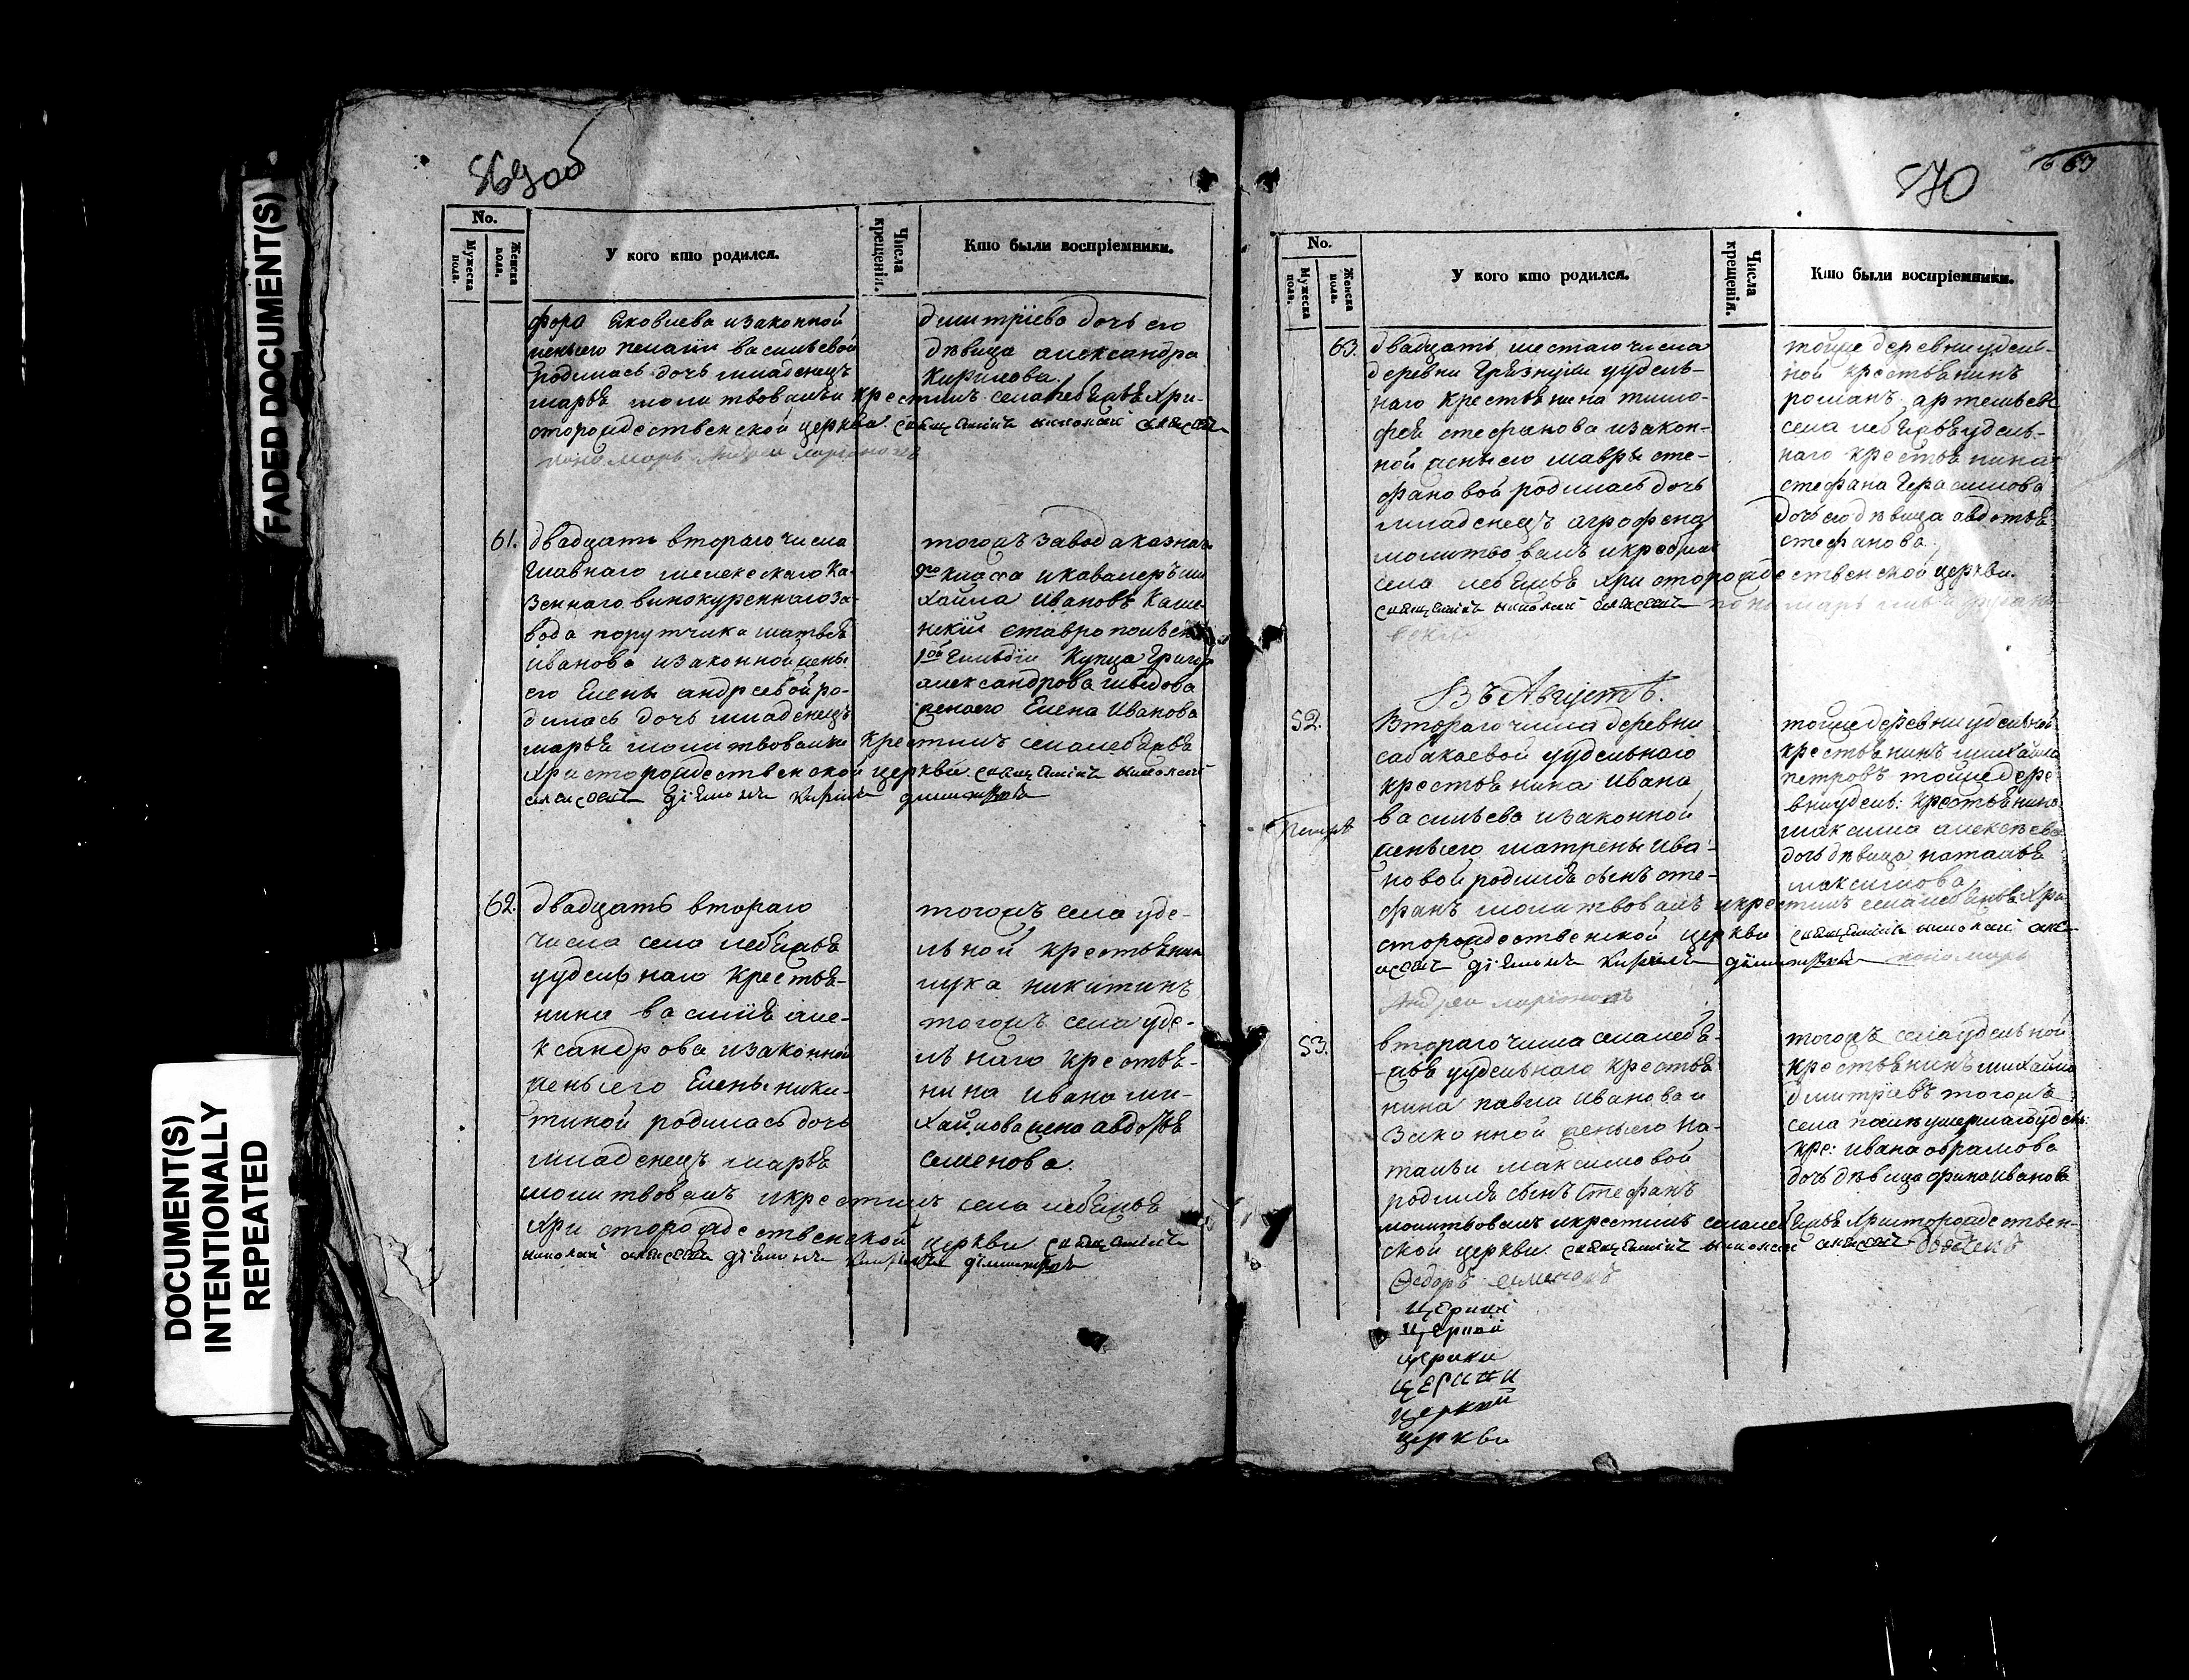 FADED DOCUMENT(S)
DOCUMENT(S)
INTENTIONALLY
REPEATED
569 об
No.
Мужеска пола.
Женска пола.
У кого кто родился.
Числа крещенія.
Кто были воспріемники.
фора Яковлева изаконной
жены его пелагіи васильевой
родилась дочь младенецъ
марья молитвовалъ и крестилъ села лебяжья Хри-
сторождественской церкви священникъ николай алексѣевъ
пономарь Андрей Ларіоновъ
дмитріева дочь его
дѣвица александра
Кирилова.
61.
двадцать втораго числа
главнаго мелекескаго Ка-
зеннаго винокуреннаго за-
вода порутчика матвея
иванова изаконной жены
его Елены андреевой ро-
дилась дочь младенецъ
марья молитвовалъ и крестилъ села лебяжья
Христорождественской церкви священникъ николай
алексѣевъ діяконъ Кирилъ димитріевъ
тогожъ завода казнач
9го класа икавалеръ ми
хайла Ивановъ Каме
нскіи ставропольск
1ой Гильдіи Купца Григор
александрова шведова
жена его Елена Иванова
62.
двадцать втораго
числа села лебяжья
удѣльнаго Крестья-
нина василія але-
ксандрова изаконной
жены его Елены ники-
тиной родилась дочь
младенецъ марья
молитвовалъ и крестилъ села лебяжья
Христорождественской церкви священникъ
николай алексѣевъ діяконъ Кирилъ димитріевъ
тогожъ села уде-
льной крестьянин
лука никитинъ
тогожъ села уде-
льнаго крестья-
нина ивана ми-
хайлова жена авдотья
семенова.
570
663
No.
Мужеска пола.
Женска пола.
У кого кто родился.
Числа крещенія.
Кто были воспріемники.
63.
двадцать шестаго числа
деревни Грязнухи удель-
наго Крестьянина тимо-
фея стефанова изакон-
ной жены его мавры сте-
фановой родилась дочь
младенецъ агрофена
молитвовалъ и крестил
села лебяжья Христорождественской церкви.
священникъ николай алексѣевъ пономарь
тойже деревни удель-
ной крестьянинъ
романъ артемьев
села лебяжья удель-
наго крестьянина
стефана Герасимова
дочь его дѣвица авдотья
стефанова.
Въ Августѣ.
52.
втораго числа деревни
сабакаевой удельнаго
крестьянина Ивана
васильева изаконной
жены его матрены Ива-
новой родился сынъ сте-
фанъ молитвовалъ и крестилъ села лебяжья Хри
сторождественской церкви священникъ николай але-
ксѣевъ діяконъ Кирилъ димитріевъ пономарь
Андрей ларіоновъ
тойже деревни удельной
крестьянинъ михайла
петровъ тойже дере
вни удель: крестьянина
максима алексѣева
дочь дѣвица наталья
максимова
53.
втораго числа села лебя-
жья удельнаго крестья
нина павла иванова и
законной жены его На-
тальи максимовой
родился сынъ Стефанъ
молитвовалъ и крестилъ села лебяжья Христорождествен-
ской церкви священникъ николай алексѣевъ дьячекъ
Федоръ семеновъ
тогожъ села удельной
крестьянинъ михайла
дмитріевъ тогожъ
села послѣ умершаго удель:
кре: ивана абрамова
дочь дѣвица ирина иванова
церкви
церкви
церкви
церкви
церкви
церкви